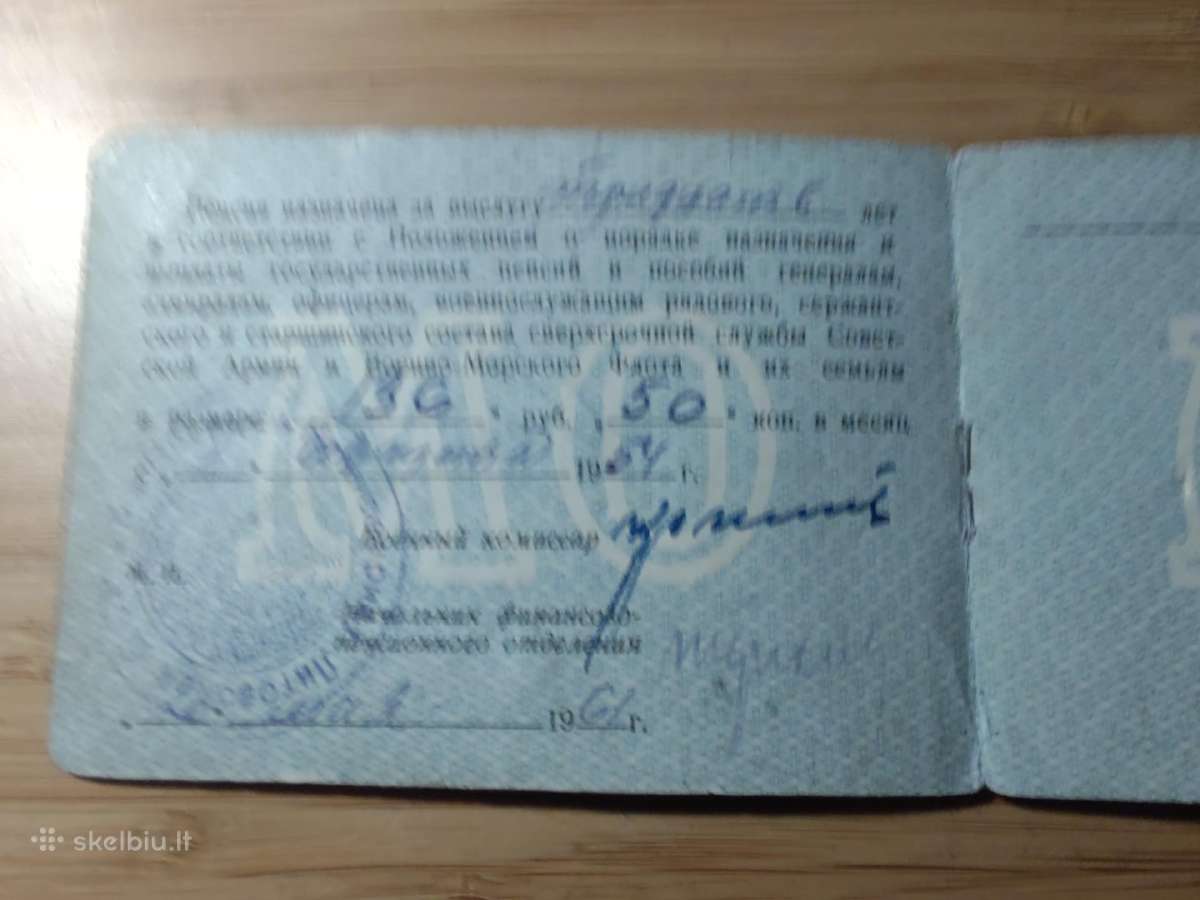 Пенсия назначена за выслугу тридцать лет
в соответствии с Положением о порядке назначения и
выплаты государственных пенсий и пособий генералам,
адмиралам, офицерам, военнослужащим рядового, сержант-
ского и старшинского состава сверхсрочной службы Совет-
ской Армии и Военно-Морского Флота и их семьям
в размере „136" руб. „50" коп. в месяц
с „ " 19 г.
Военный комиссар
М. П.
Начальник финансово-
пенсионного отделения
мая 1961 г.
skelbiu.lt